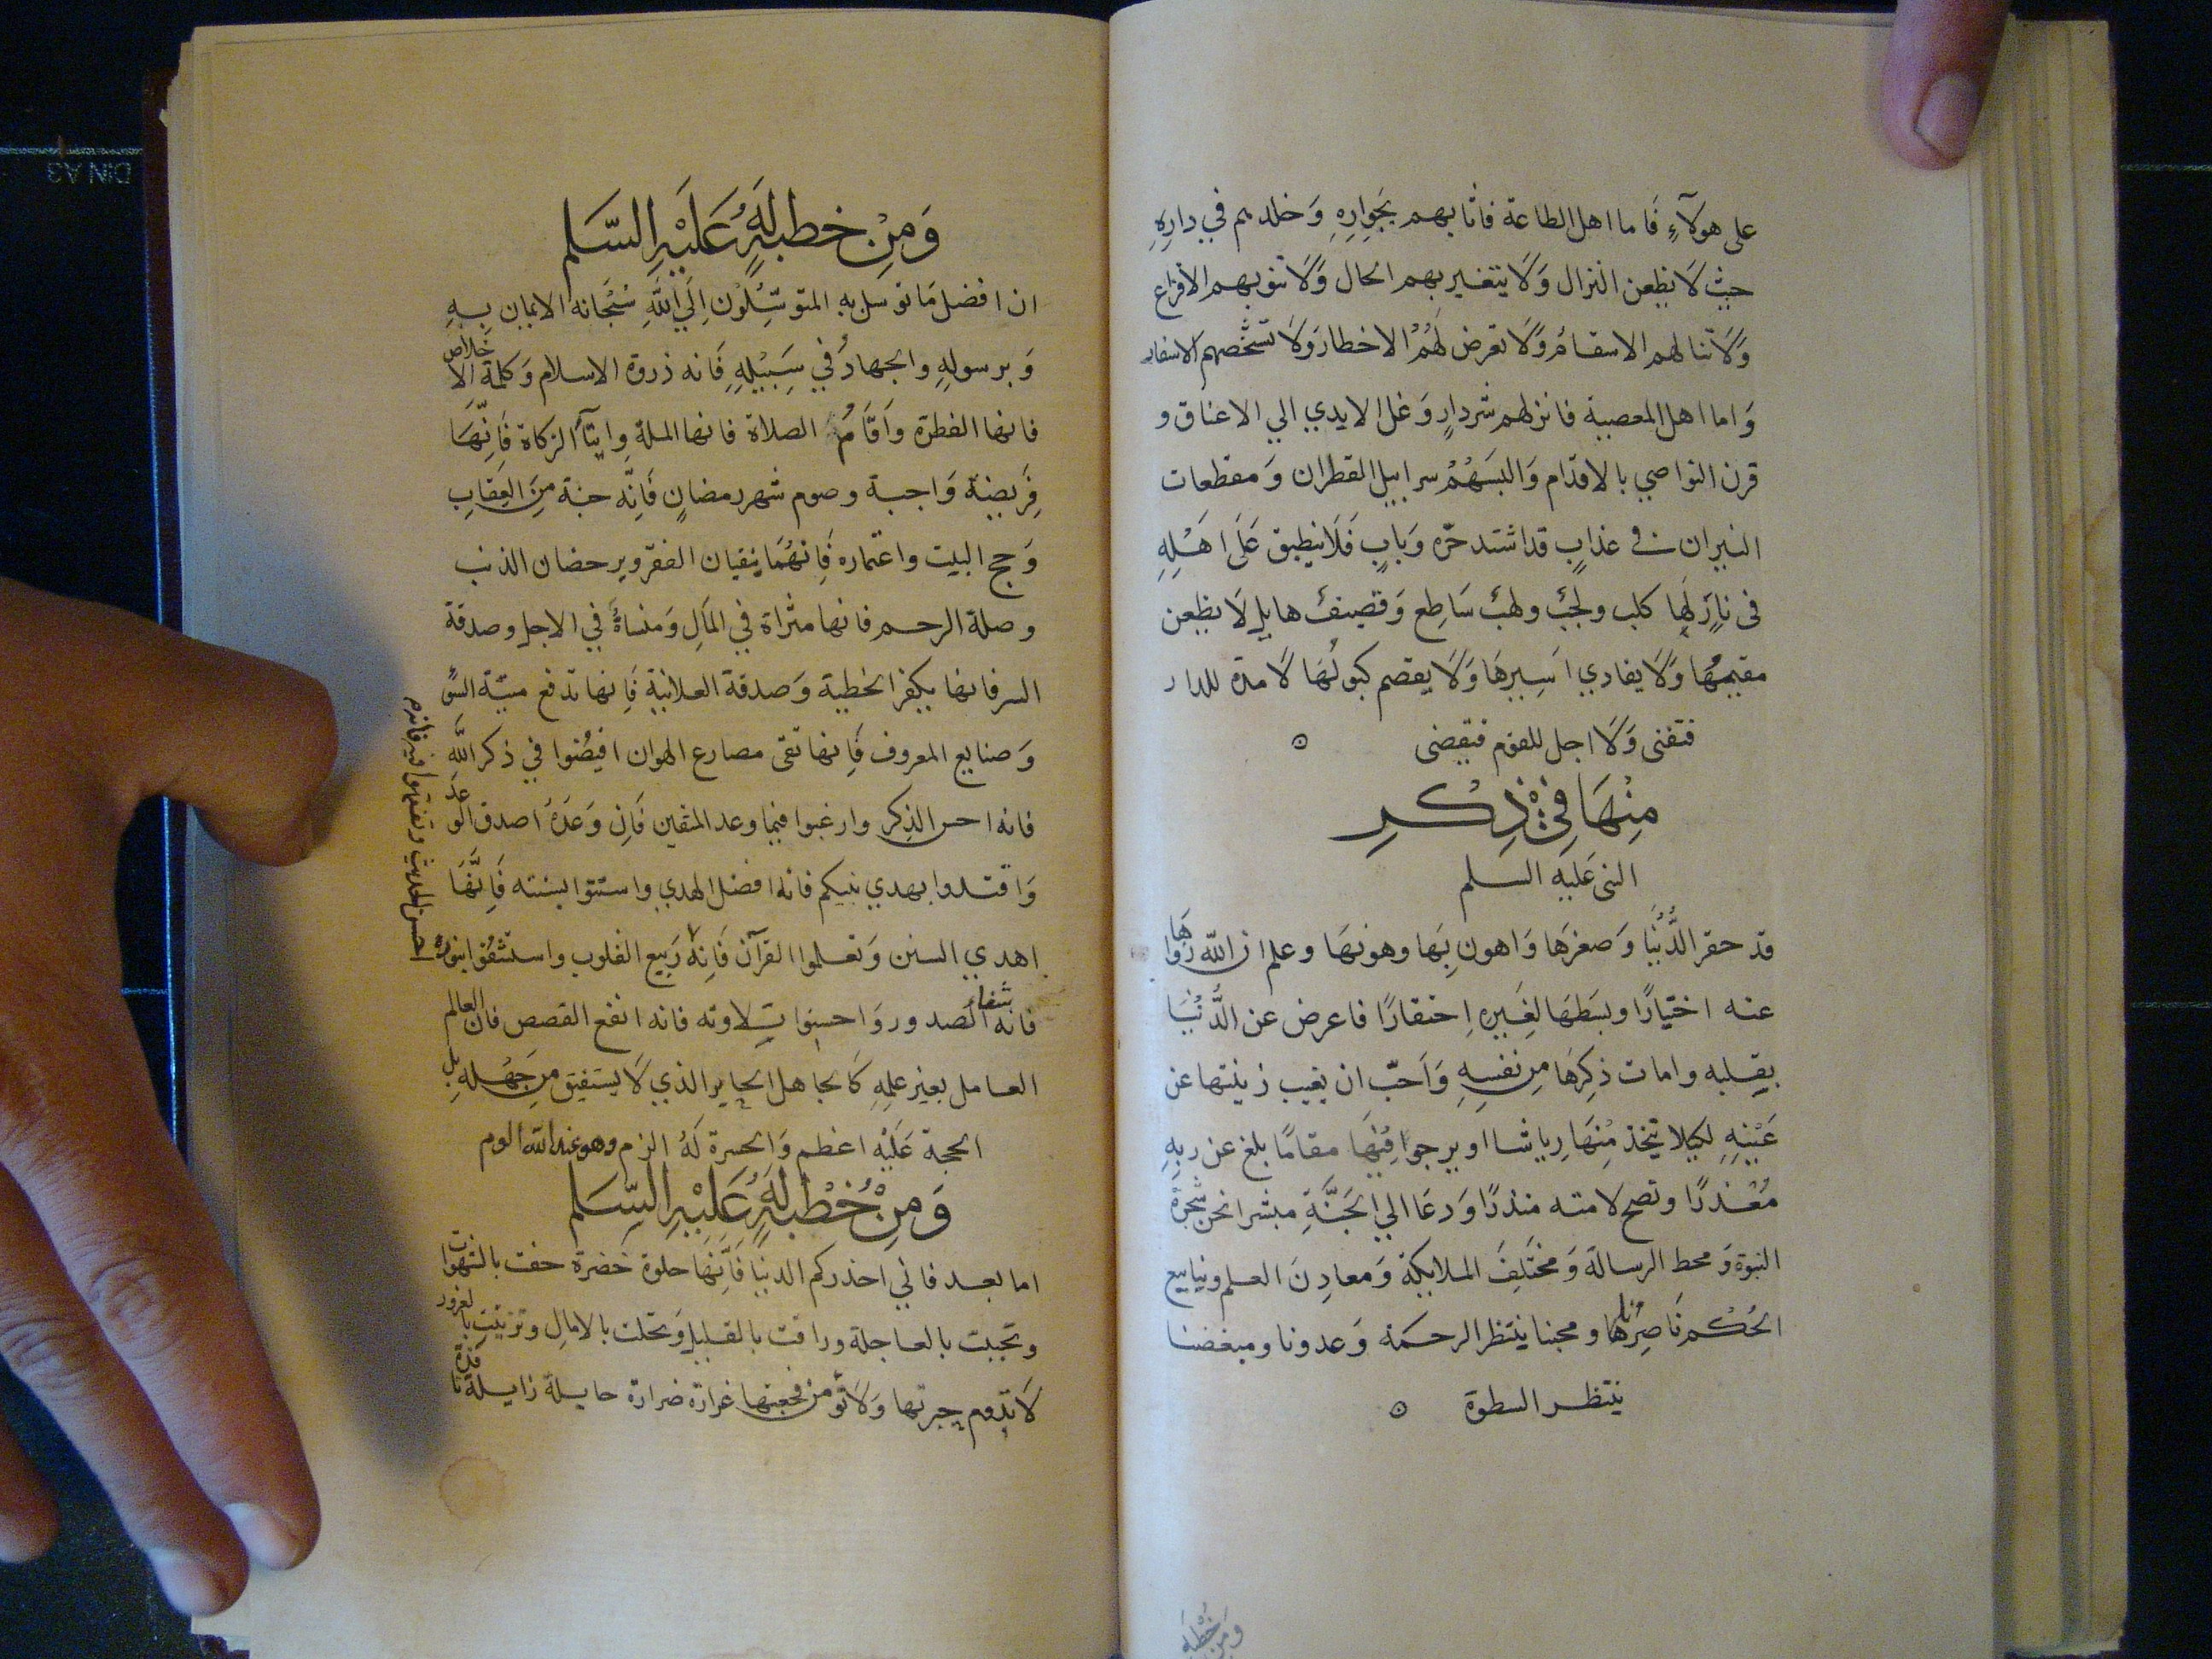 على هولآءِ فَاما اهل الطاعة فاثابهم بجوارِهِ وَخلدهم في دارِهِ
حيث لَا يظعن النزال وَلَا يتغير بهم الحال وَلَا تنوبهم الافزاع
وَلَا تنالهم الاسقامُ وَلَا تعرض لَهُمُ الاخطار وَلَا تشخصهم الاسفار
وَاما اهل المعصية فانزلهم شر دارٍ وَغل الايدي الي الاعناق و
قرن النواصي بالاقدَام وَالبسَهُمْ سرابيل القطران وَمقطعات
النيران في عذابٍ قد اشتد حرّه وَبابٍ قَد انطبق عَلَى اهَلِهِ
فى نارٍ لَها كلب ولجبٌ ولهبٌ سَاطِع وَقصيفٌ هايل لَا يظعن
مقيمُهَا وَلَا يفادي اسِيرهَا وَلَا يقصم كبولُهَا لَا مدة للدار
فتفنى وَلَا اجل للقوم فيقضى
مِنْهَا فِي ذِكْرِ
النبى عَليَه السلم
قد حقر الدُّنْيَا وَصغرَهَا وَاهون بِهَا وهونهَا وعلم ان الله زَوَاهَا
عنه اختيَارًا وبسَطهَا لِغَيرِه اِحتقارًا فاعرض عن الدُّنْيَا
بقلبه وامات ذكرهَا مِن نفسِهِ وَاَحبّ ان يغيب زينتها عن
عَيْنِهِ لكيلا يتخذ مِنْهَا رِياشا او يرجوا فِيْهَا مقامًا بلغ عن ربِهِ
مُعْذرًا ونصح لامته منذرًا وَدعَا الي الجَنَّةِ مبشرا نحن شجرة
النبوة وَمحط الرسالة وَمختَلِفَ الملايكة وَمعادِنَ العلم وينابيع
الحُكْم نَاصِرُنا ومحبنا ينتظر الرحمَة وَعدونا ومبغضنا
ينتظر السطوة
وَمِن خُطْبَة
وَمِنْ خطبةٍ لَهُ عَلَيْهِ السَّلم
ان افضل مَا توسل به المتوسِّلُوْن اِلَي اللَّهِ سُبْحَانه الايمان بِهِ
وَبرسولهِ والجهادُ في سَبِيْلِهِ فَانه ذروة الاسلام وَكلمة الاخلاص
فانها الفطرة وَاقَامُ الصلاة فانها الملة وايتآ الزكاة فَانّهَا
فِرَيضة وَاجبة وصوم شهر رمضانٍ فَانِّه جنة مِنَ العِقابِ
وَحج البيت واعتماره فَانهُمَا ينفيان الفقر ويرحضان الذنب
وصلة الرحم فانها مثراة في المَالِ وَمنساةٌ في الاجل وصدقة
السر فانها يكفر الخطية وَصدقة العلانية فَانها تدفع ميتة السّوَ
وَصنايع المعروف فَانها تقى مصارع الهوان افيضُوا في ذكر اللَّهِ
فانه احسن الذِكر وارغبوا فيما وعد المتقين فَان وَعَدَهُ اصدق الوَعد
وَاقتدوا بهدي نبيكم فانه افضل الهدي واستنوا بسنته فَانَّهَا
اهدي السنن وَتعلموا القرآن فَانِهُ رَبيع القلوب واستشفُوا بنوره
فانه شفاء الصدور وَاحسِنوا تِلاوته فانه انفع القصص فان العالم
العامل بغير علمِهِ كَالجاهل الحاير الذي لَا يستفيق مِن جَهْلهِ بل
الحجة عَلَيْه اعظم وَالحسرة لَهُ الزم وهو عند الله الوم
احسن الحديث وتفقهوا فيه فانه
وَمِنْ خُطْبَةٍ لَهُ عَلَيْهِ السَّلم
اما بعد فاني احذركم الدنيَا فَانِّهَا حلوة خَضرة حفت بالشهوات
وتحببت بالعاجلة وراقت بالقليل وَتحلت بالامالِ وتزينتِ بالغرور
لَا تدوم حبرتها وَلَا تؤمن فجعتها غرارة ضرارة حايلة زايلة نافدة